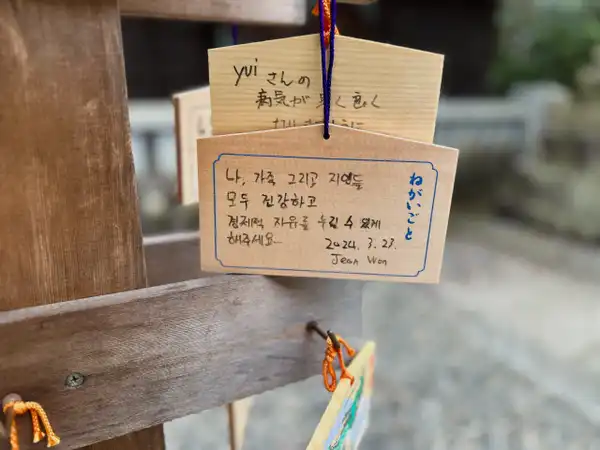 yuiさんの
病気が早く良く
ねがいごと
나, 가족 그리고 지인들
모두 건강하고
경제적 자유를 누릴 수 있게
해주세요
2024. 3. 23.
Jean Won